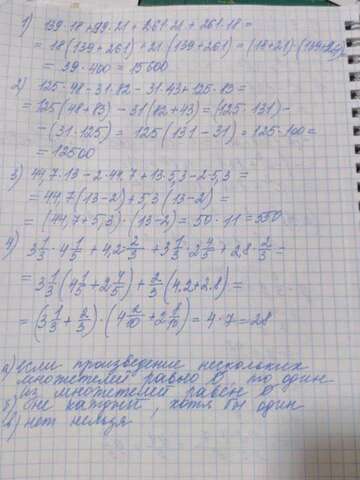 1) 139·18+99·21+261·21+261·18=
= 18(139+261)+21(139+261)=(18+21)·(139+261)
= 39·400=15600
2) 125·48-31·82-31·43+125·83=
= 125(48+83)-31(82+43)=(125·131)-
-(31·125)= 125(131-31)=125·100=
= 12500
3) 44,7·13-2·44,7+13·5,3-2·5,3=
= 44,7(13-2)+5,3(13-2)=
= (44,7+5,3)·(13-2)=50·11=550
4) 3 1/3·4 1/5+4,2·2/3+3 1/3·2 4/5+2,8·2/3=
= 3 1/3(4 1/5+2 4/5)+2/3(4.2+2.8)=
= (3 1/3+2/3)·(4 2/10+2 8/10)=4·7=28
а) если произведение нескольких
множетелей равно 0, то один
из множетелей равен 0
б) не каждый, хотя бы один
в) нет нельзя